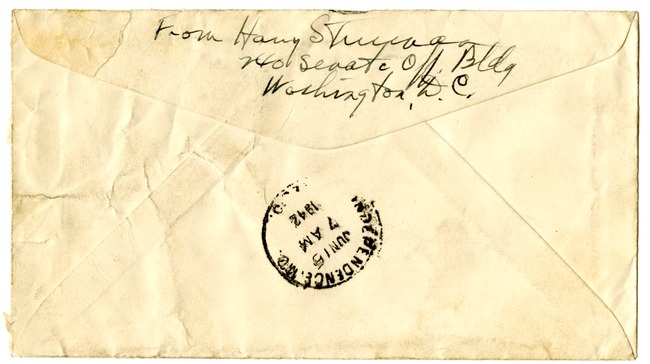 From Harry S Truman
240 Senate Off. Bldg
Washington, D.C.
INDEPENDENCE, MO.
JUN 15
7 AM
1942